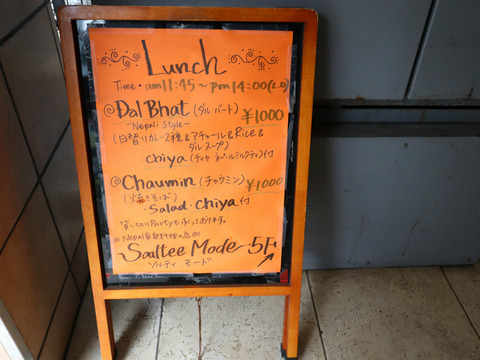 Lunch
Time・am11:45～pm14:00(L.O)
@Dal Bhat(ダルバート) ¥1000
-Nepali Style-
(日替りカレー2種&アチャール&Rice&
ダルスープ)
・chiya(チィヤ ネパールミルクティ)付
@Chaumin(チャウミン) ¥1000
(焼きそば)
・Salad・Chiya付
貸し切りPartyも承っております。
@Nepal家庭料理の店@
Saaltee Mode 5F
ソルティ モード